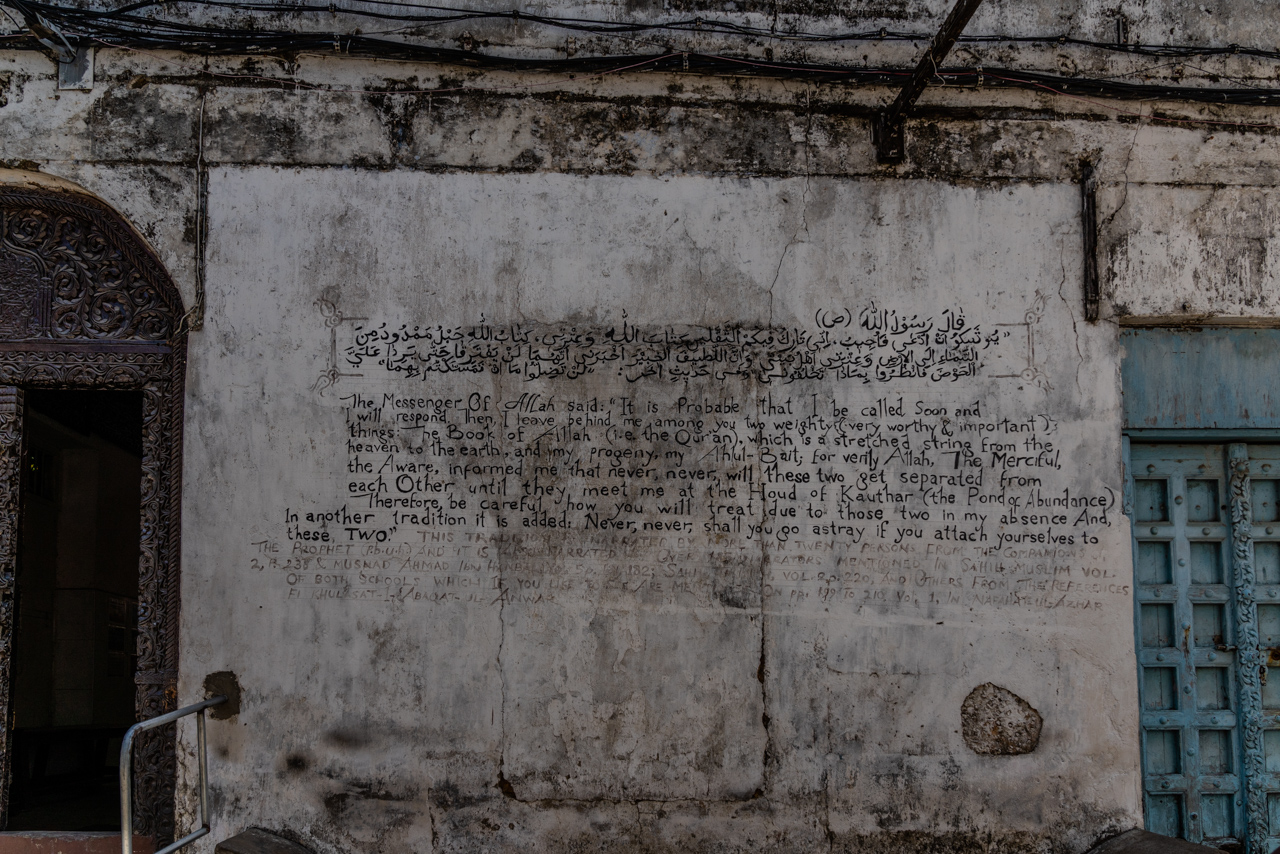 قَالَ رَسُوْلُ اللّٰهِ (ص)
"يُوْشَكُ اَنْ اُدْعٰى فَاُجِيْبُ. اِنِّي تَارِكٌ فِيْكُمُ الثَّقْلَيْنِ كِتَابَ اللّٰهِ وَعِتْرَتِيْ. كِتَابُ اللّٰهِ حَبْلٌ مَمْدُوْدٌ مِنَ
السَّمَاءِ اِلَى الْاَرْضِ وَعِتْرَتِيْ اَهْلُ بَيْتِيْ وَاِنَّ اللَّطِيْفَ الْخَبِيْرَ اَخْبَرَنِيْ اَنَّهُمَا لَنْ يَفْتَرِقَا حَتّٰى يَرِدَا عَلَيَّ
الْحَوْضَ فَانْظُرُوْا بِمَاذَا تَخْلُفُوْنِيْ وَفِيْ حَدِيْثٍ اٰخَرَ: "لَنْ تَضِلُّوْا مَا اِنْ تَمَسَّكْتُمْ بِهِمَا"
The Messenger Of Allah said: "It is Probable that I be called Soon and
I will respond. Then I leave behind me among you two weighty (very worthy & important)
things: The Book of Allah (i.e. the Qur'an), which is a stretched string from the
heaven to the earth, and my progeny, my Ahlul-Bait; for verily Allah, The Merciful,
the Aware, informed me that never, never, will these two get separated from
each Other until they meet me at the Houd of Kauthar (the Pond of Abundance)
Therefore, be careful, how you will treat due to those two in my absence And,
In another tradition it is added: Never, never, shall you go astray if you attach yourselves to
these, TWO."
THIS TRADITION IS NARRATED BY MORE THAN TWENTY PERSONS FROM THE COMPANIONS
THE PROPHET (P.b.u.h) AND IT IS ALSO NARRATED OVER MENTIONED IN SAHIH MUSLIM VOL.
2, P. 238 & MUSNAD AHMAD 182; VOL. 2, p. 220, AND OTHERS FROM THE REFERENCES
OF BOTH SCHOOLS WHICH IF YOU LIKE ARE ON pp. 199 TO 210 VOL. 1, IN
FI KHULASAT-I-ABAQAT-IL-ANWAR